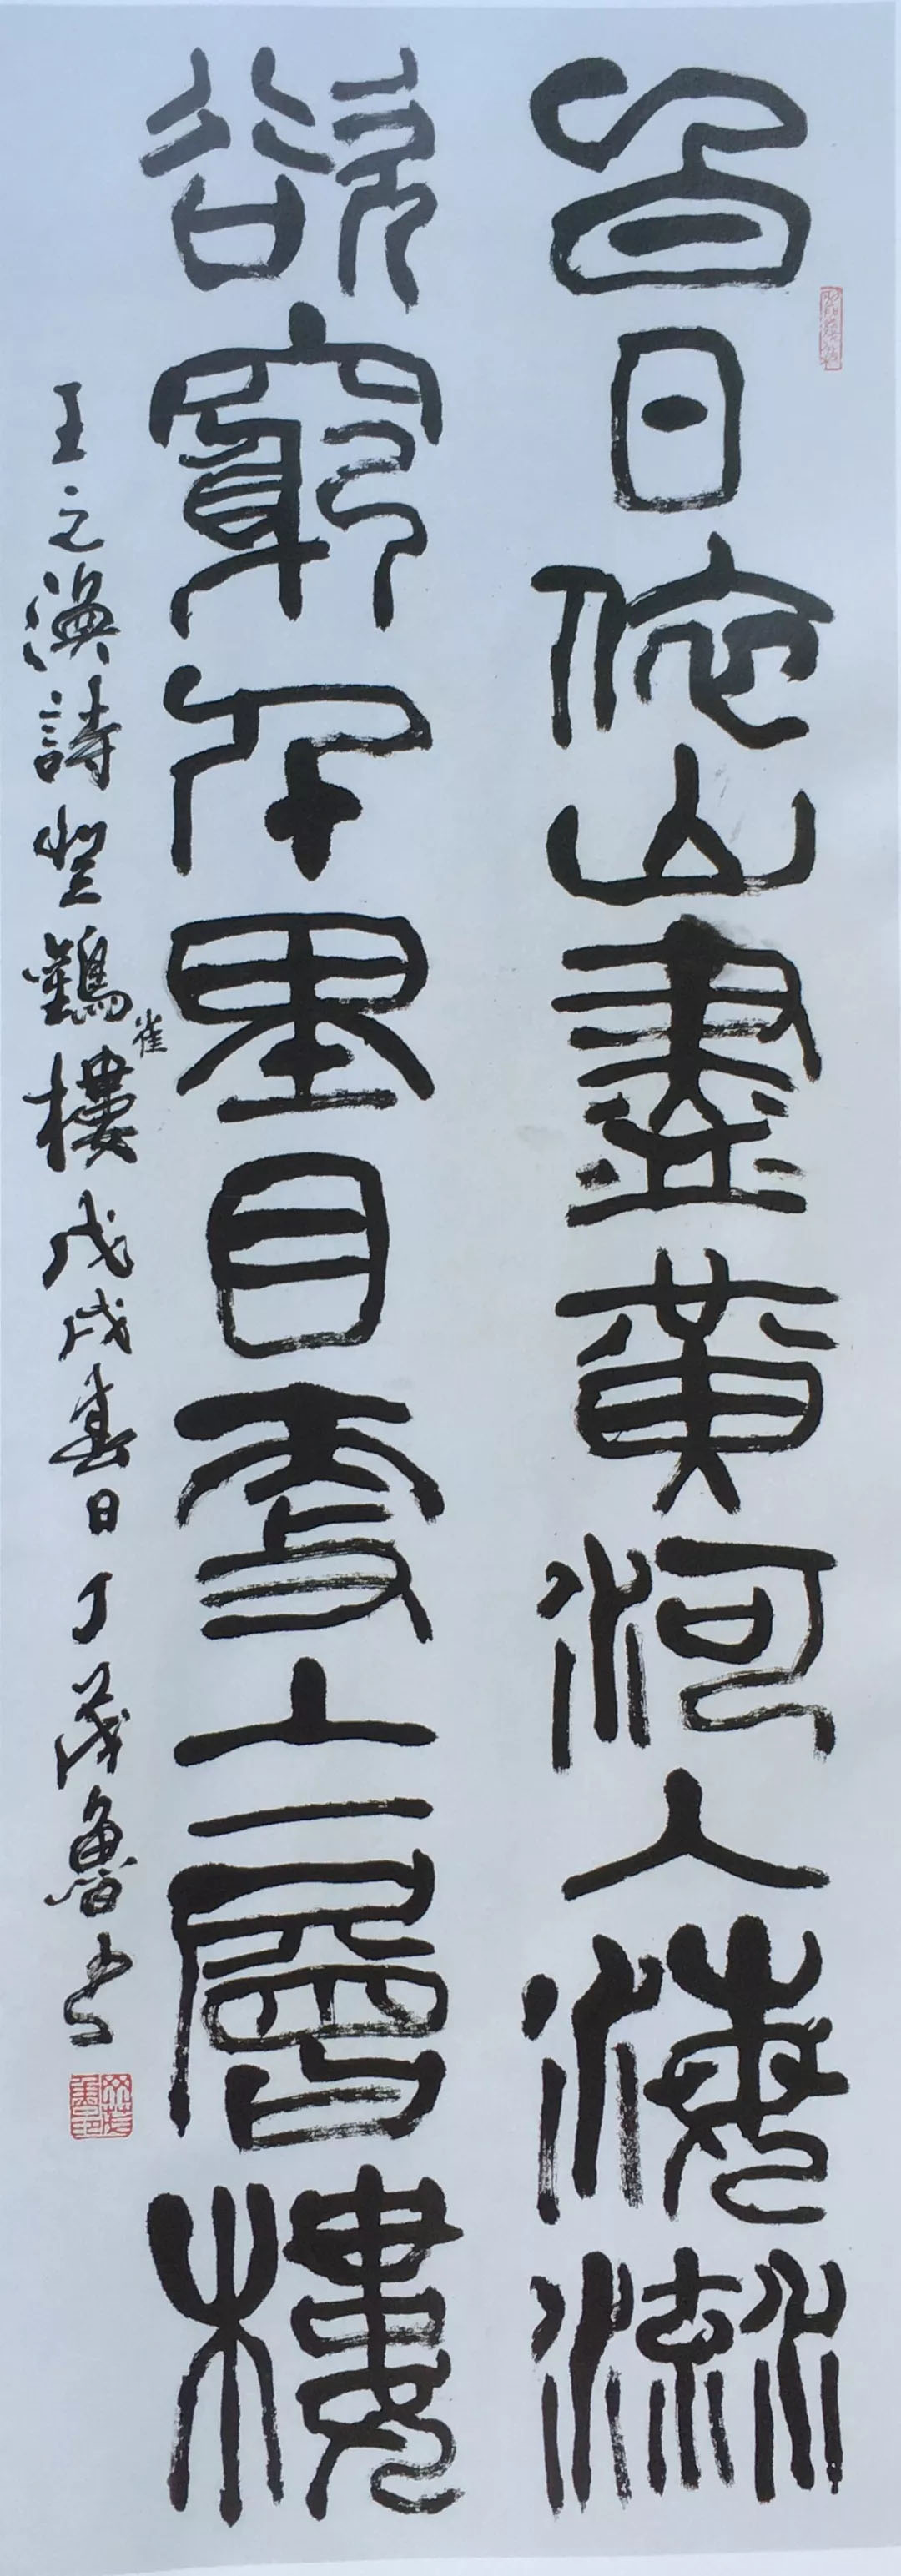 白日依山盡黃河入海流
欲窮千里目更上一層樓
王之渙詩登鸛雀樓戊戌春日丁茂魯書